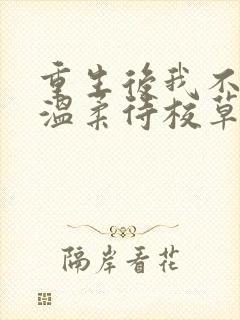 重生後我不
溫柔待校草
隔岸看花